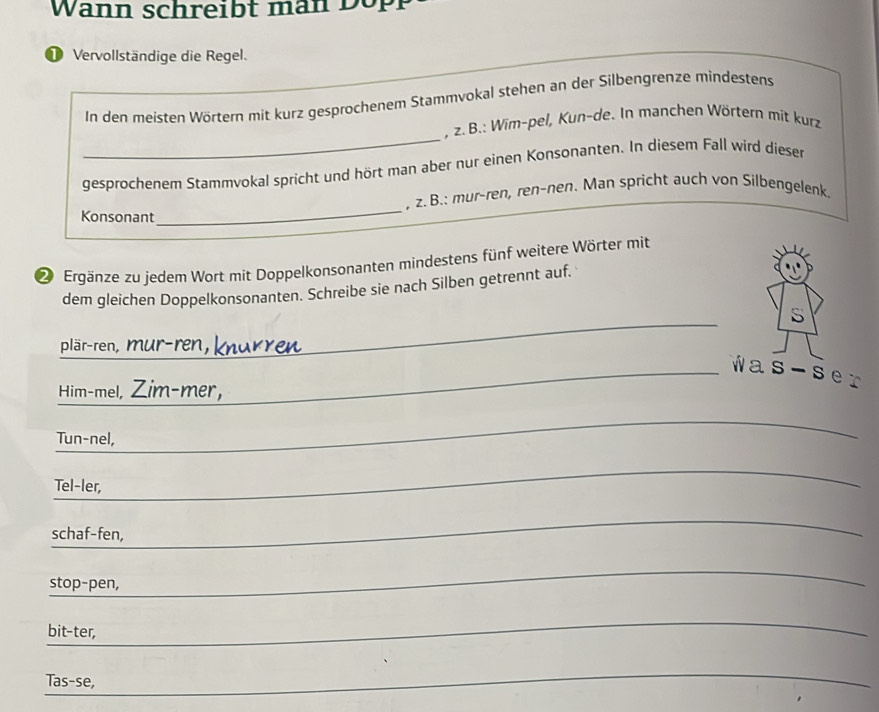 Wann schreibt man Dopp
1 Vervollständige die Regel.
In den meisten Wörtern mit kurz gesprochenem Stammvokal stehen an der Silbengrenze mindestens
, z. B.: Wim-pel, Kun-de. In manchen Wörtern mit kurz
gesprochenem Stammvokal spricht und hört man aber nur einen Konsonanten. In diesem Fall wird dieser
Konsonant , z. B.: mur-ren, ren-nen. Man spricht auch von Silbengelenk.
2 Ergänze zu jedem Wort mit Doppelkonsonanten mindestens fünf weitere Wörter mit
dem gleichen Doppelkonsonanten. Schreibe sie nach Silben getrennt auf.
S
plär-ren, mur-ren, knurren
Was-ser
Him-mel, Zim-mer,
Tun-nel,
Tel-ler,
schaf-fen,
stop-pen,
bit-ter,
Tas-se,